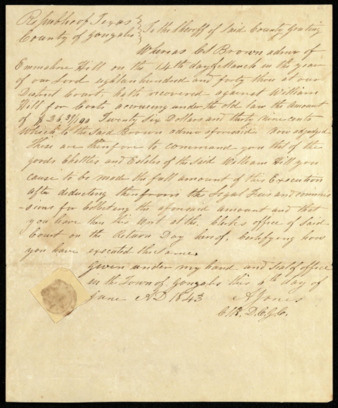 Republic of Texas
County of Gonzales } To the Sheriff of said County Greeting
Whereas Cd Brown admr of
Hill on the 14th day of March in the year
of our Lord eighteen hundred and forty three at our
District Court hath recovered against William
Hill for Costs accrueing under the old law the amount
of $26 39/100 Twenty Six Dollars and thirty nine cents
Which to the Said Brown admr aforesaid
These are therefore to command you that of the
goods Chattles and Estate of the said William Hill you
cause to be made the full amount of this Execution
after deducting therefrom the legal Fees and commis
sions for collecting the aforesaid amount and that
you have this Writ at the Clerk's office of said
Court on the Return Day hereof, Certifying how
you have executed the same.
Given under my hand and Seal of office
in the Town of Gonzales this day of
June AD 1843
A Jones
Clk. D.C.G.C.